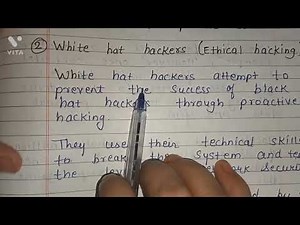 VITA
② White hat hackers (Ethical hacking)
White hat hackers attempt to
prevent the success of black
hat hackers through proactive
hacking.
They use their technical skills
to break the system and
the